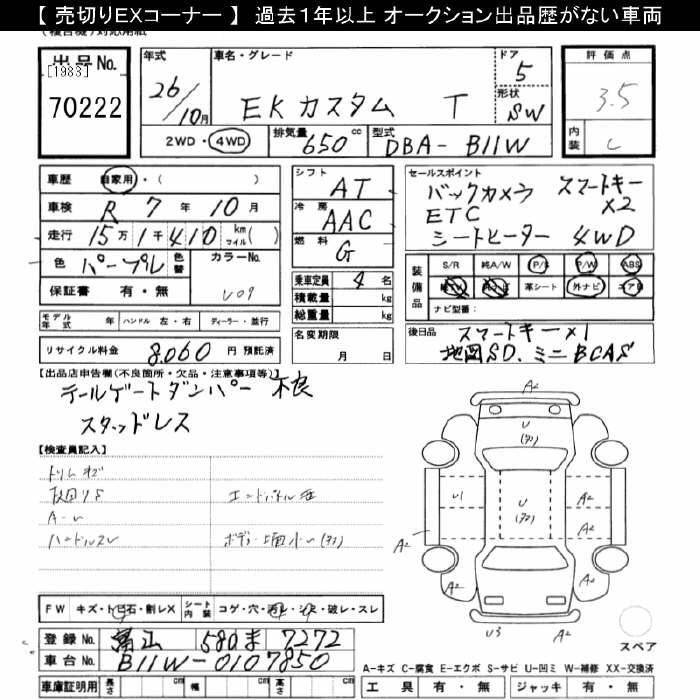 【 売切りEXコーナー 】 過去1年以上 オークション出品歴がない車両
出品No.
[1983]
70222
年式
26/10月
車名・グレード
EKカスタム T
ドア
5
形状
SW
評価点
3.5
内装
C
2WD・4WD
排気量
650cc
型式
DBA-B11W
車歴
自家用・( )
車検
R 7年 10月
走行
15万1千410 km マイル( )
色
パープル
色替
カラーNo.
保証書 有・無
モデル年式 年
ハンドル 左・右
ディーラー・並行
リサイクル料金 8,060 円 預託済
シフト
AT
冷房
AAC
燃料
G
乗車定員 4 名
積載量 kg
総重量 kg
名変期限
月 日
セールスポイント
バックカメラ スマートキー×2
ETC
シートヒーター 4WD
装備品
S/R 純A/W P/S P/W ABS
革シート 外ナビ エアB
ナビ型番:
後日品
スマートキー×1
地図SD、ミニBCAS
【出品店申告欄(不良箇所・欠品・注意事項等)】
テールゲートダンパー不良
スタッドレス
【検査員記入】
F W キズ・トビ石・割レX
シート内装 コゲ・穴・汚レ・シミ・破レ・スレ
登録No. 富山 580 ま 7272
車台No. B11W-0107850
車庫証明用 長さ cm 幅 cm 高さ cm
A2
U
U1
U
A2
A2
A2
A2
A2
U3
スペア
A-キズ C-腐食 E-エクボ S-サビ U-凹ミ W-補修 XX-交換済
工具 有・無 ジャッキ 有・無